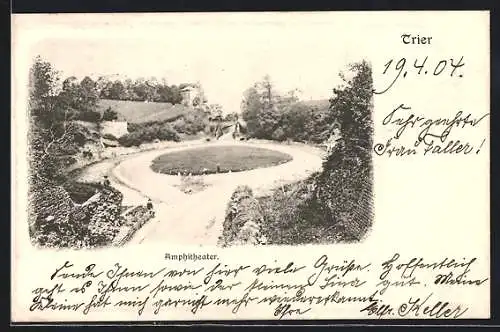 Trier
19.4.04.
Sehr geehrte
Frau Faller!
Amphitheater.
Sende Ihnen von hier viele Grüße. Hoffentlich
geht es Ihnen sowie der kleinen Lina gut. Meine
Kleine hat mich garnicht mehr wiedererkannt.
Ihre Keller